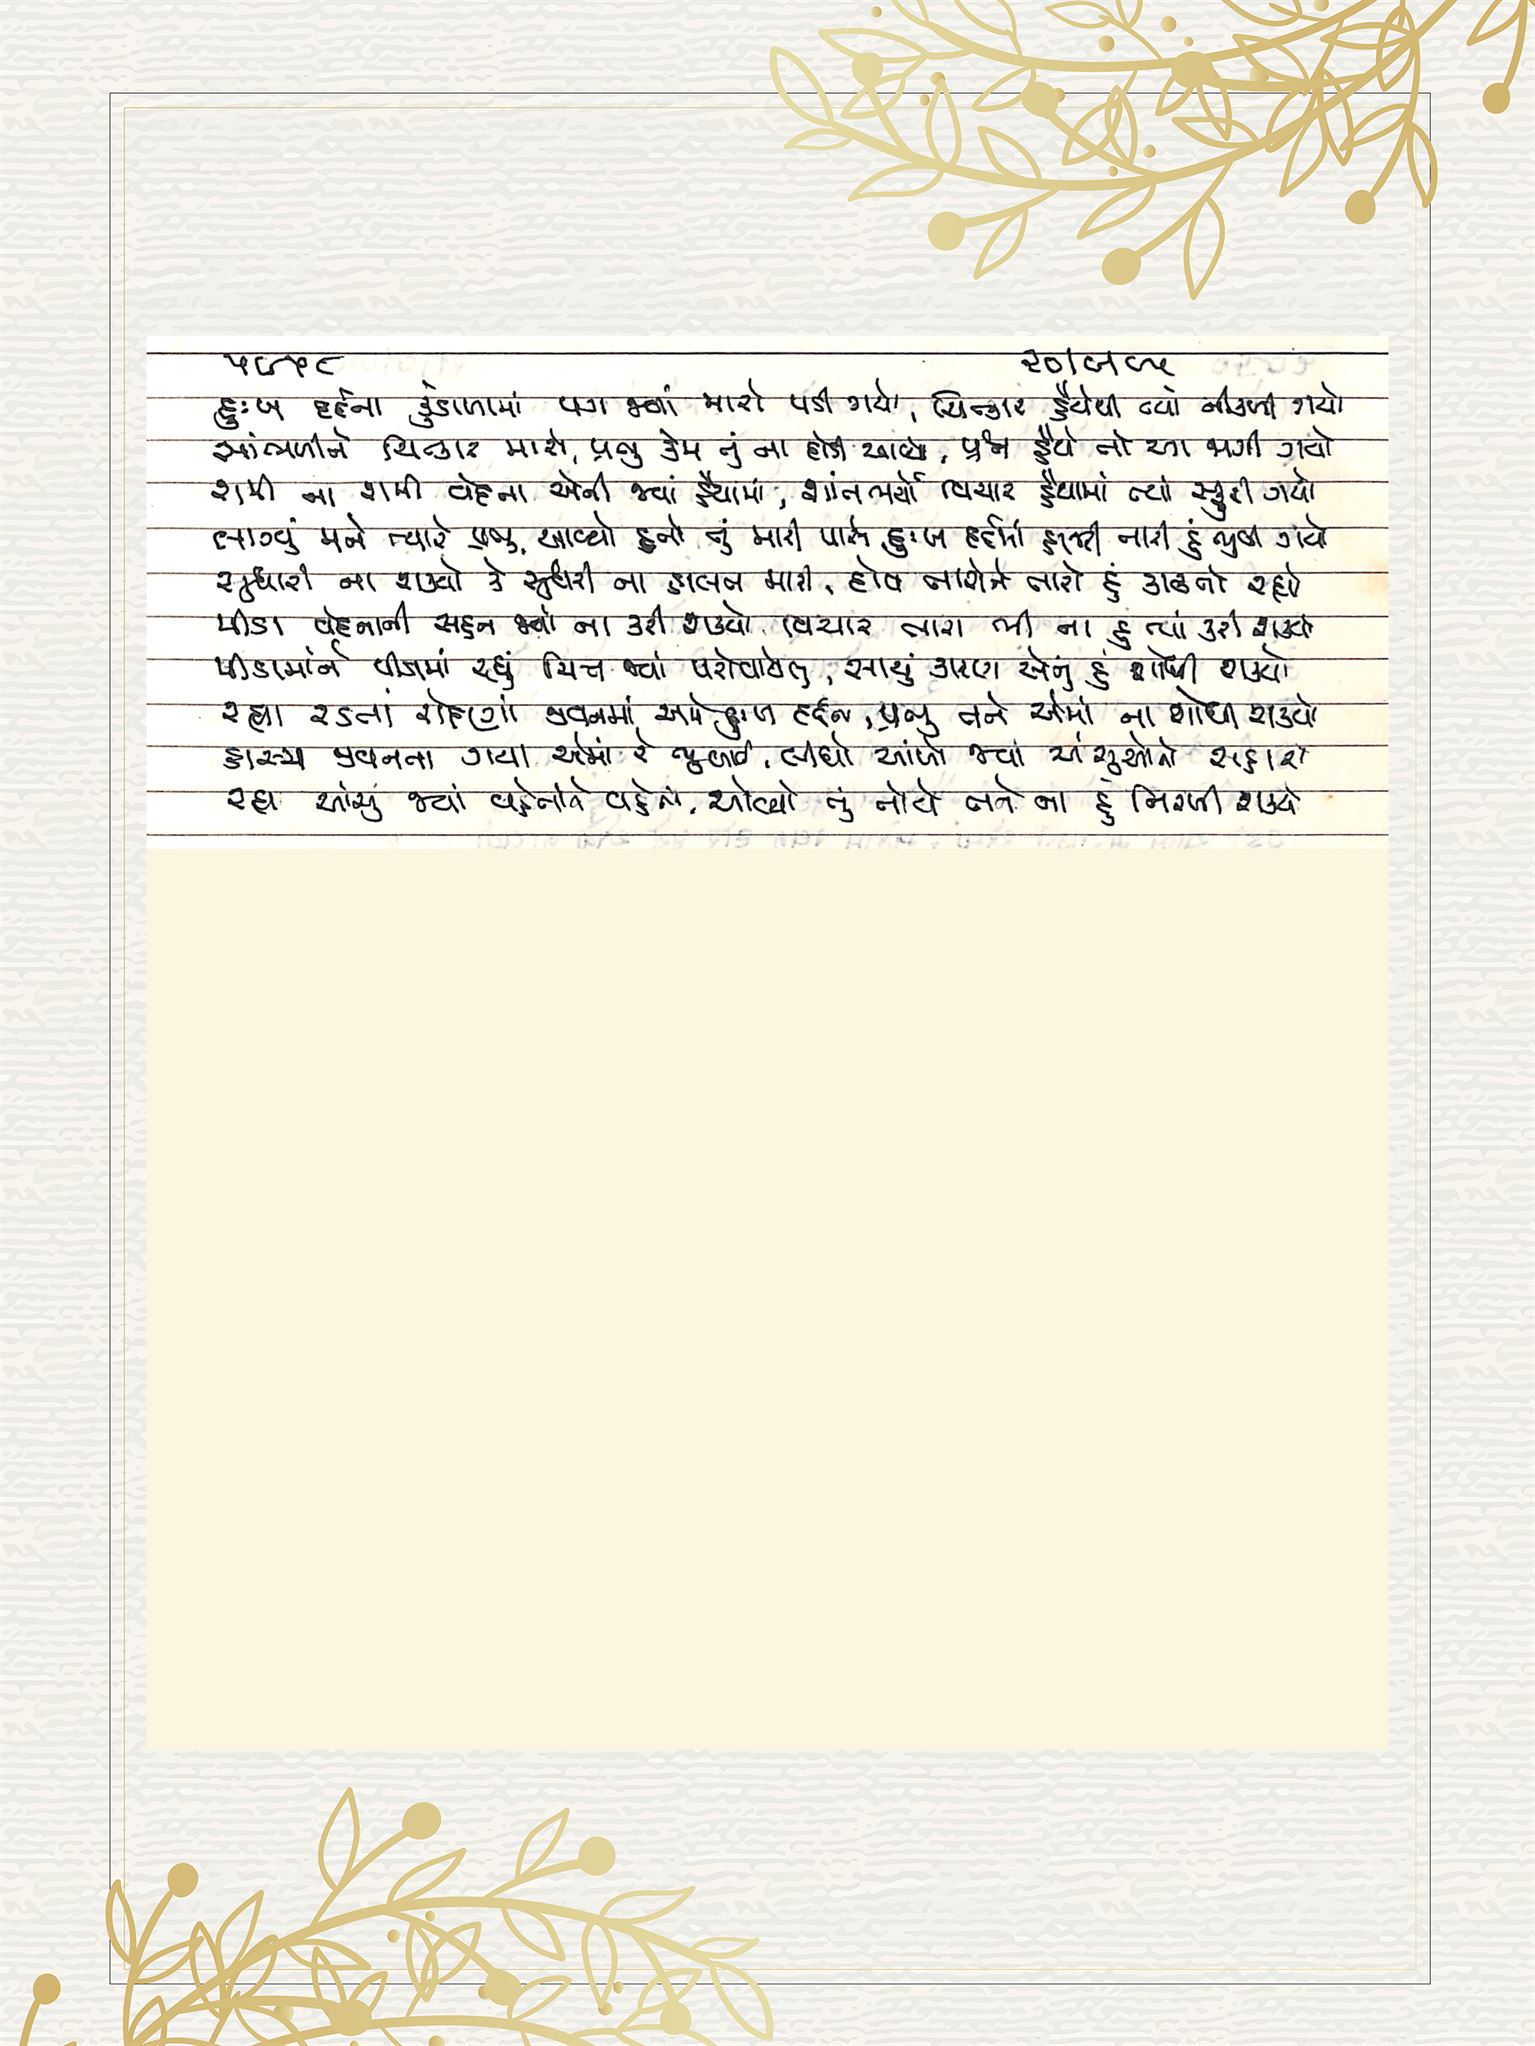 ૫૮૫૮
દુઃખ દર્દના કુંડાળામાં પગ જ્યાં મારો પડી ગયો, ચિત્કાર હૈયેથી ત્યાં નીકળી ગયો
સાંભળીને ચિત્કાર મારો, પ્રભુ કેમ તું ના દોડી આવ્યો, પ્રશ્ન હૈયે તો આ જાગી ગયો
શમી ના શમી વેદના એની જ્યાં હૈયામાં, શાંત ભર્યો વિચાર હૈયામાં ત્યાં સ્ફુરી ગયો
લાગ્યું મને ત્યારે પ્રભુ, આવ્યો હતો તું મારી પાસે દુઃખ દર્દમાં હાજરી તારી હું ભુલી ગયો
સુધારી ના શક્યો કે સુધરી ના હાલત મારી, દોષ ભાગ્યને તારો હું કાઢતો રહ્યો
પીડા વેદનાની સહન જ્યાં ના કરી શક્યો વિચાર તારા ભી ના હું ત્યાં કરી શક્યો
પીડામાંને પીડામાં રહ્યું ચિત્ત જ્યાં પરોવાયેલું, સાચું કારણ એનું હું શોધી શક્યો
રહ્યા રડતાં રોદણાં જીવનમાં અમે દુઃખ દર્દના, પ્રભુ તને એમાં ના શોધી શક્યો
હાસ્ય જીવનના ગયા એમાં રે ભુલાઈ, લીધો આંખો જ્યાં આંસુઓનો સહારો
રહ્યા આંસું જ્યાં વહેતાંને વહેતાં, આવ્યો તું તોયે તને ના હું નિરખી શક્યો